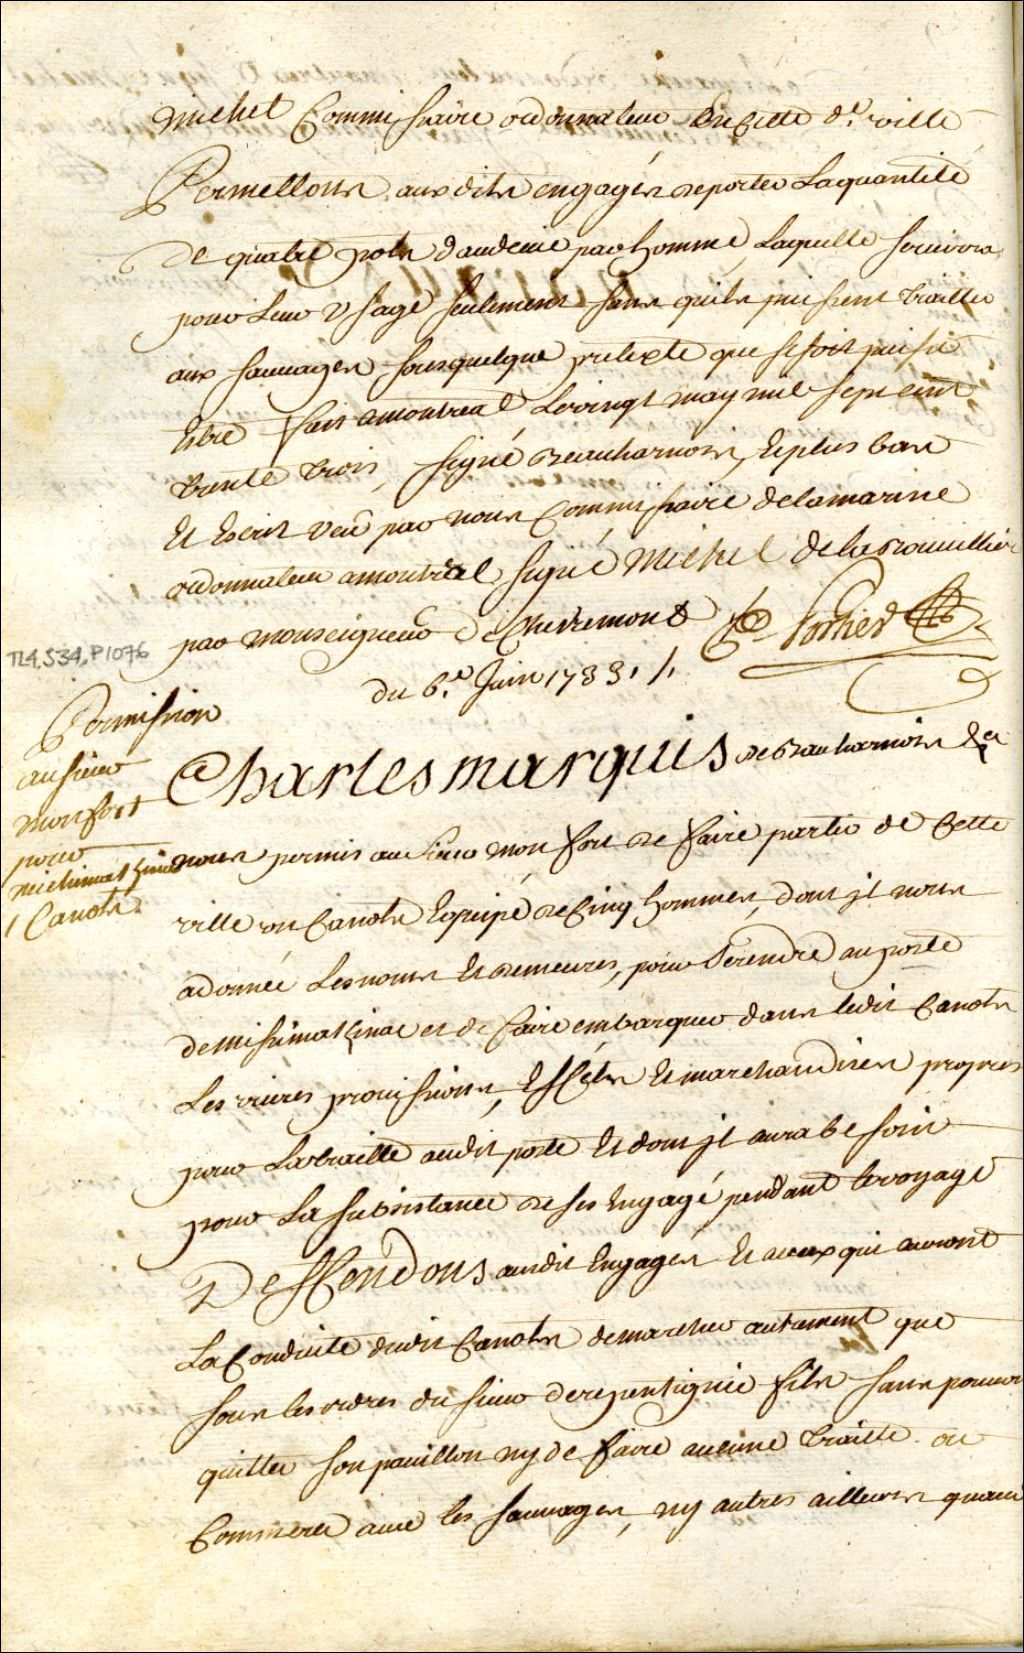 Michel Commissaire ordonnateur En Cette d.e ville
Permettons aux dits engagés de porter La quantité
De quatre pots d'audevie par homme, Laquelle servira
pour Leur Usage seulement sans quils puissent traitter
aux sauvages, sous quelque pretexte que se soit puisse
Estre fait a montreal, Le vingt may mil sept cent
trente trois, signé Beauharnois, Et plus bas
Et Escrit Veu par nous Commissaire de la marine
ordonnateur a montreal, signé Michel de la Rouvillier
par Monseigneur De Chevremont Porlier
du 6.e Juin 1733 ./.
TL4,S34,P1076
Permission
au sieur
Monfort
pour
michimakina
1 Canots.
Charles marquis de Beauharnois &a
nous permis au Sieur Monfort de faire partir de Cette
ville un Canots Equipé de Cinq hommes, dont jl nous
a donnée Les noms Et demeures, pour Se rendre au poste
de Missimakinac et de faire embarquer dans ledit Canots
Les vivres provissions, Effets Et marchandises propres
pour La traitte audit poste Et dont jl aura besoin
pour La subsistance de ses Engagé pendant le voyage
Deffendons audit Engagés Et a ceux qui auront
La Conduite dudit Canots de marcher autrement que
sous les ordres du sieur de repentignie fils sans pouvoir
quitter son pavillon ny de faire aucune traitte ou
Commerce avec les sauvages, ny autres ailleurs quau